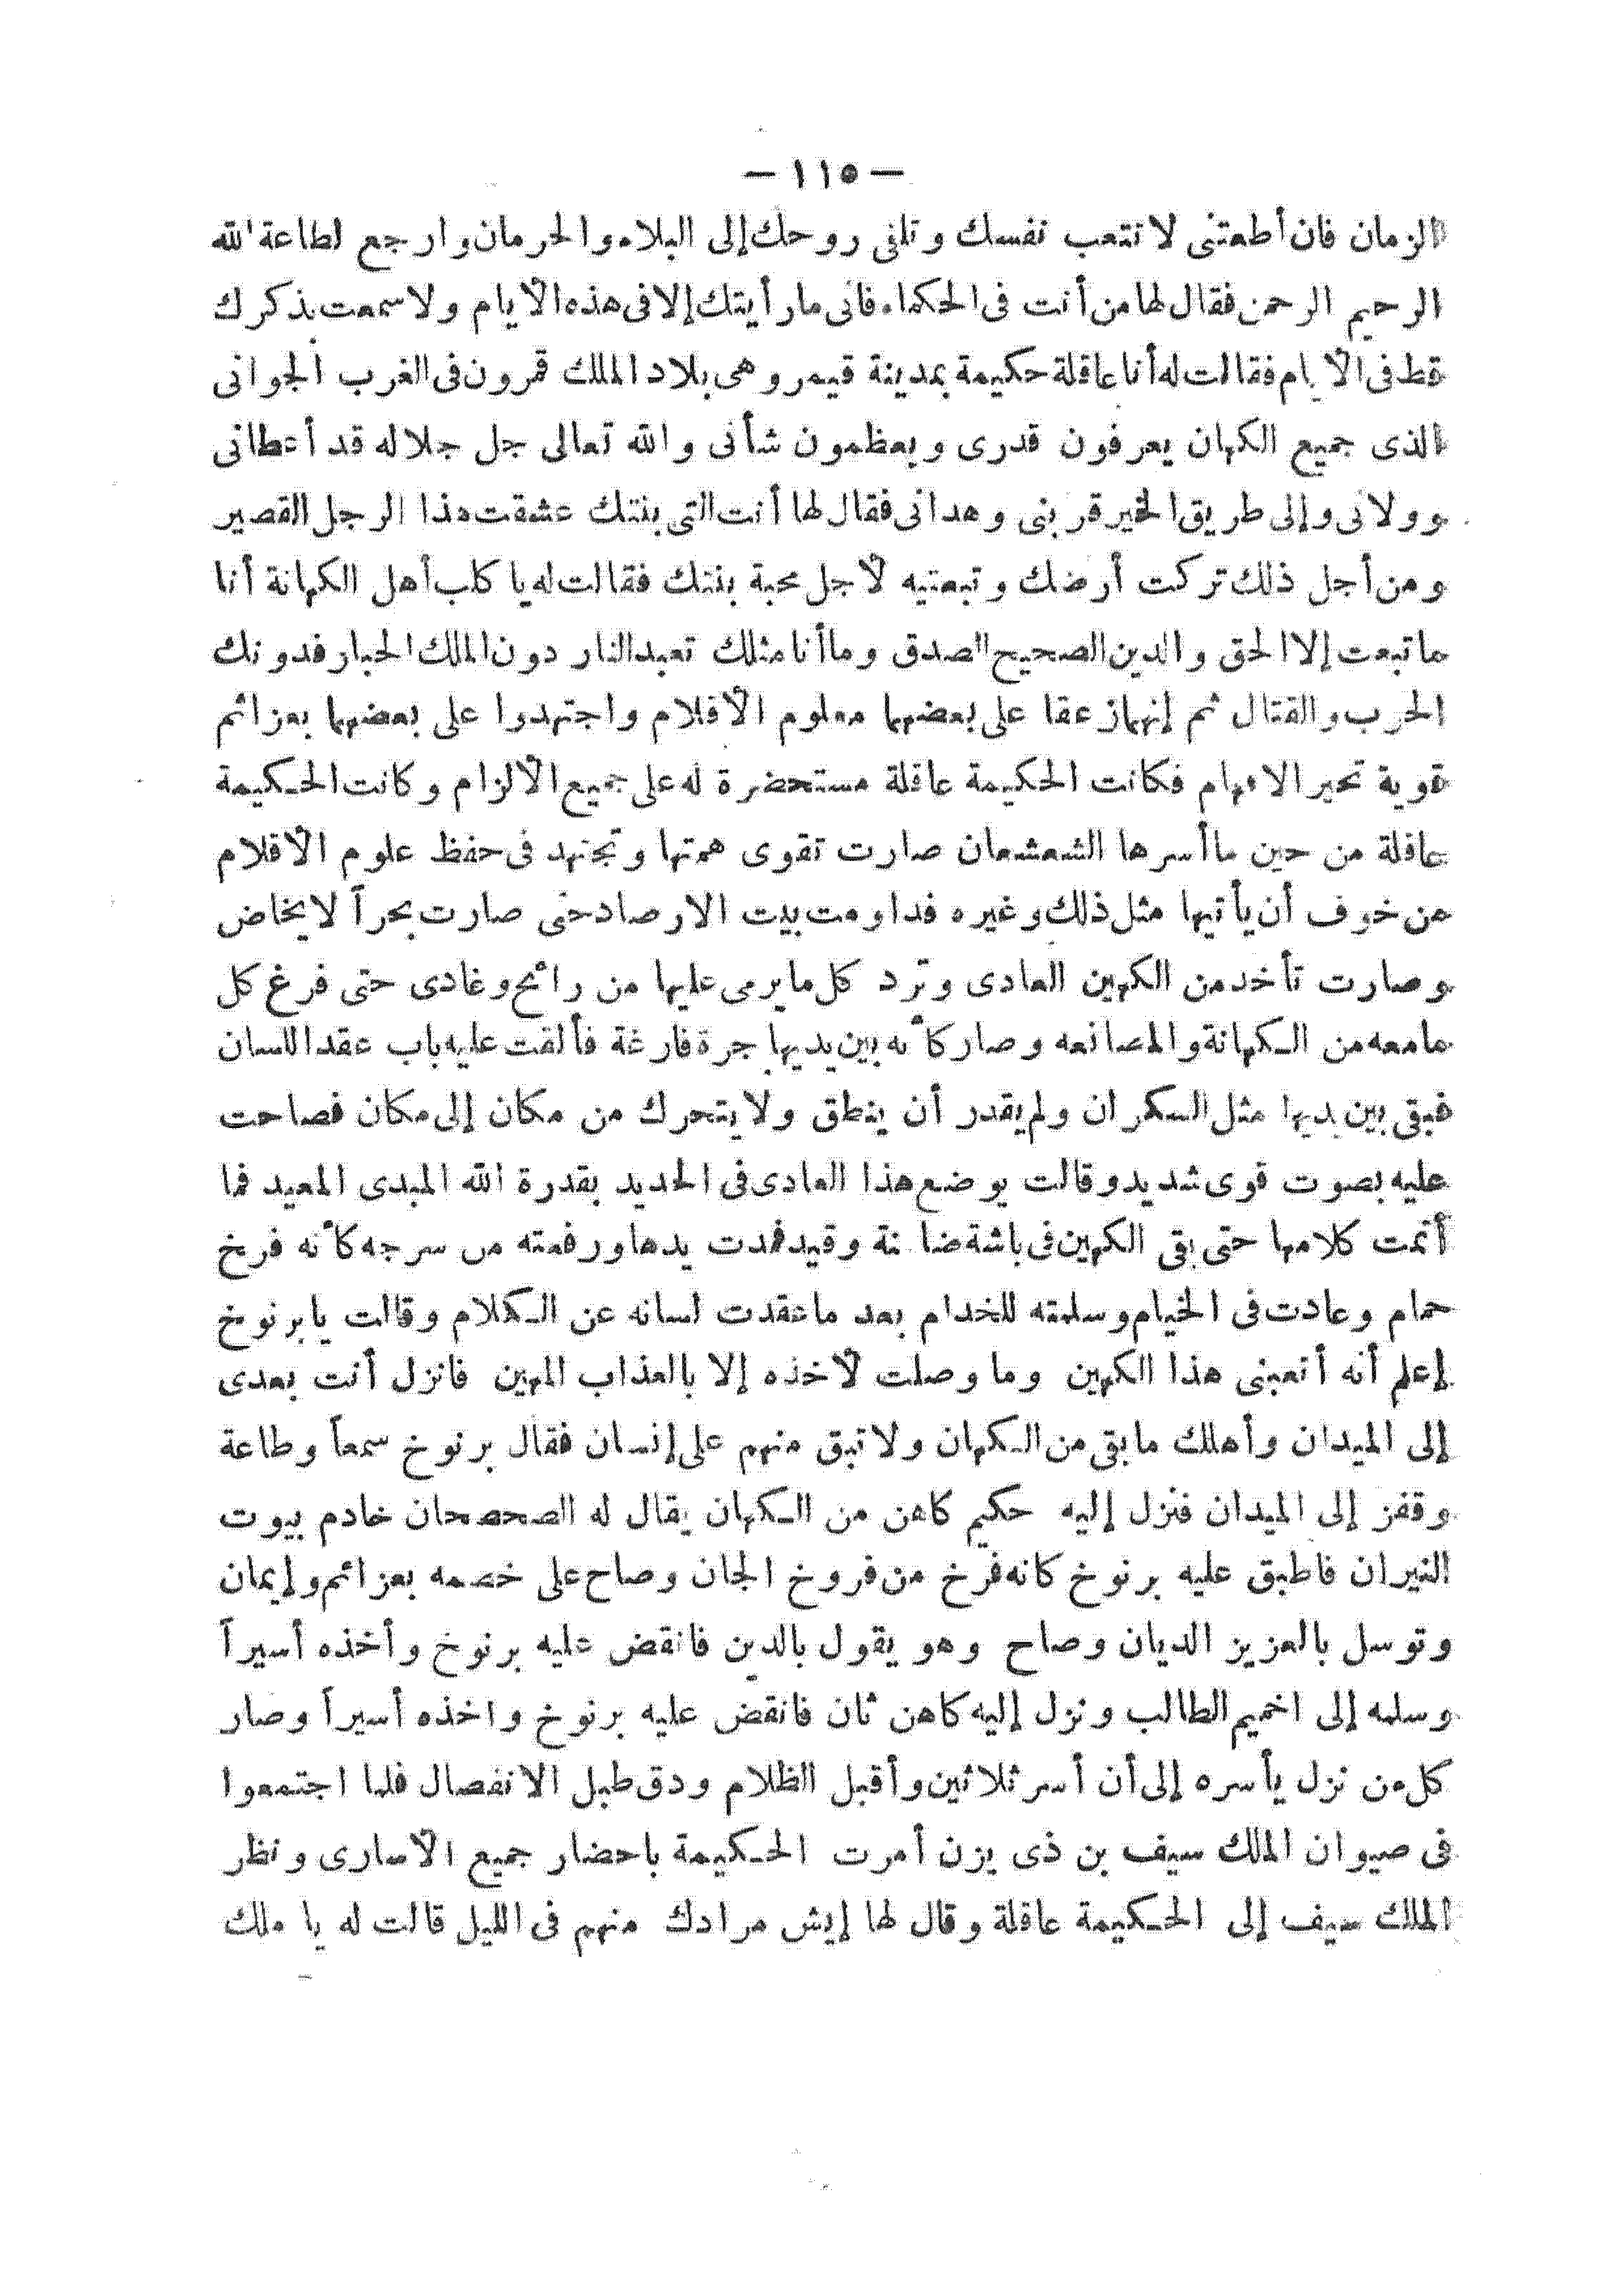 — ١١٥ —
الزمان فان أطعتنى لا تتعب نفسك وتلقى روحك إلى البلاء والحرمان وارجع لطاعة الله
الرحيم الرحمن فقال لها من أنت فى الحكماء فانى ما رأيتك إلا فى هذه الأيام ولا سمعت بذكرك
قط فى الأيام فقالت له أنا عاقلة حكيمة بمدينة قيمر وهى بلاد الملك قمرون فى الغرب الجوانى
الذى جميع الكهان يعرفون قدرى ويعظمون شأنى والله تعالى جل جلاله قد أعطانى
وولانى وإلى طريق الخير قربنى وهدانى فقال لها أنت التى بنتك عشقت هذا الرجل القصير
ومن أجل ذلك تركت أرضك وتبعتيه لأجل محبة بنتك فقالت له يا كلب أهل الكهانة أنا
ما تبعت إلا الحق والدين الصحيح الصدق وما أنا مثلك تعبد النار دون الملك الجبار فدونك
الحرب والقتال ثم إنهما زعقا على بعضهما معلوم الأقلام واجتهدوا على بعضهما بعزائم
قوية تحير الافهام فكانت الحكيمة عاقلة مستحضرة له على جميع الألزام وكانت الحكيمة
عاقلة من حين ما أسرها الشعشعان صارت تقوى همتها وتجتهد فى حفظ علوم الأقلام
من خوف أن يأتيها مثل ذلك وغيره فداومت بيت الارصاد حتى صارت بحراً لا يخاض
وصارت تأخد من الكهين العادى وترد كل ما يرمى عليها من رائح وغادى حتى فرغ كل
ما معه من الكهانة والمصانعه وصار كأنه بين يديها جرة فارغة فألقت عليه باب عقد اللسان
فبقى بين يديها مثل السكران ولم يقدر أن ينطق ولا يتحرك من مكان إلى مكان فصاحت
عليه بصوت قوى شديد وقالت يوضع هذا العادى فى الحديد بقدرة الله المبدى المعيد فما
أتمت كلامها حتى بقى الكهين فى باشة ضامنة وقيد فمدت يدها ورفعته من سرجه كأنه فرخ
حمام وعادت فى الخيام وسلمته للخدام بعد ما عقدت لسانه عن الكلام وقالت يا برنوخ
إعلم أنه أتعبنى هذا الكهين وما وصلت لأخذه إلا بالعذاب المهين فانزل أنت بعدى
إلى الميدان وأهلك ما بقى من الكهان ولا تبق منهم على إنسان فقال برنوخ سمعاً وطاعة
وقفز إلى الميدان فنزل إليه حكيم كاهن من الكهان يقال له الصحصحان خادم بيوت
النيران فاطبق عليه برنوخ كانه فرخ من فروخ الجان وصاح على خصمه بعزائم وإيمان
وتوسل بالعزيز الديان وصاح وهو يقول بالدين فانقض عليه برنوخ وأخذه أسيراً
وسلمه إلى اخميم الطالب ونزل إليه كاهن ثان فانقض عليه برنوخ واخذه أسيراً وصار
كل من نزل يأسره إلى أن أسر ثلاثين وأقبل الظلام ودق طبل الانفصال فلما اجتمعوا
فى صيوان الملك سيف بن ذى يزن أمرت الحكيمة باحضار جميع الأسارى ونظر
الملك سيف إلى الحكيمة عاقلة وقال لها إيش مرادك منهم فى الليل قالت له يا ملك